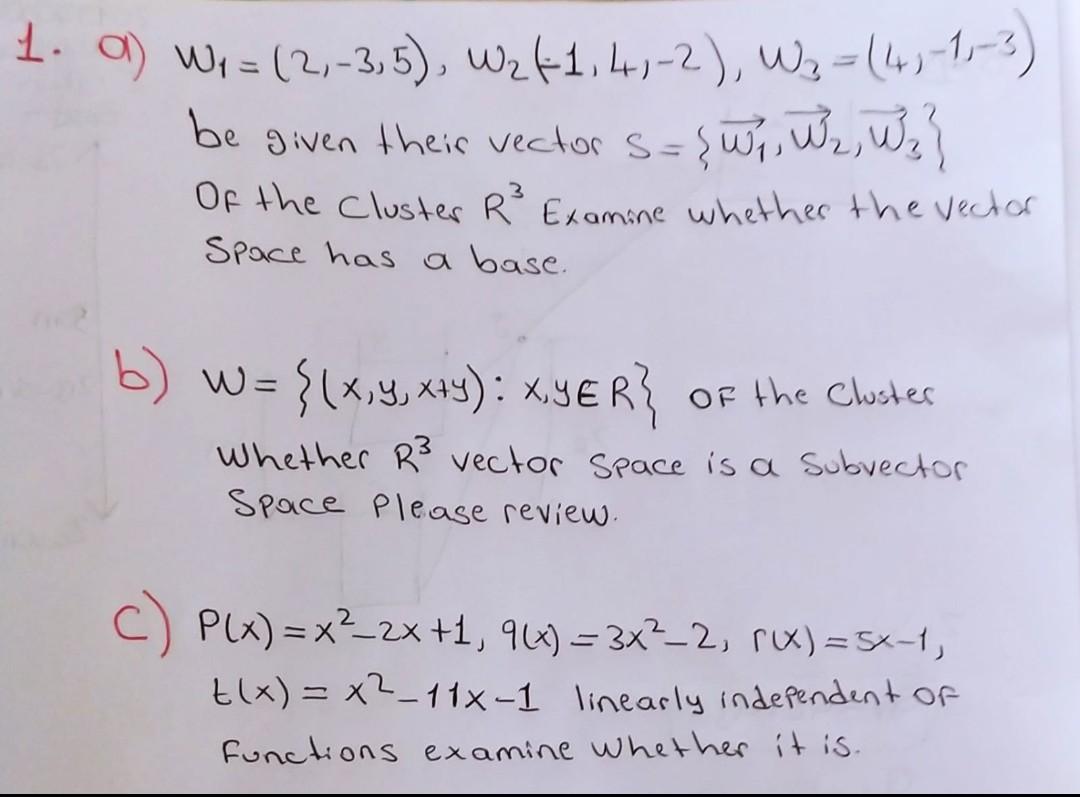 1. a) W₁ = (2,-3,5), W₂(-1,4,-2), W₃ = (4,-1,-3)
be given their vector S = {W₁, W₂, W₃}
Of the Cluster R³ Examine whether the vector
Space has a base.
b) W = {(x,y,x+y): x,y∈R} OF the Cluster
Whether R³ vector Space is a Subvector
Space Please review.
c) P(x) = x²-2x+1, q(x) = 3x²-2, r(x) = 5x-1,
t(x) = x²-11x-1 linearly independent OF
Functions examine whether it is.